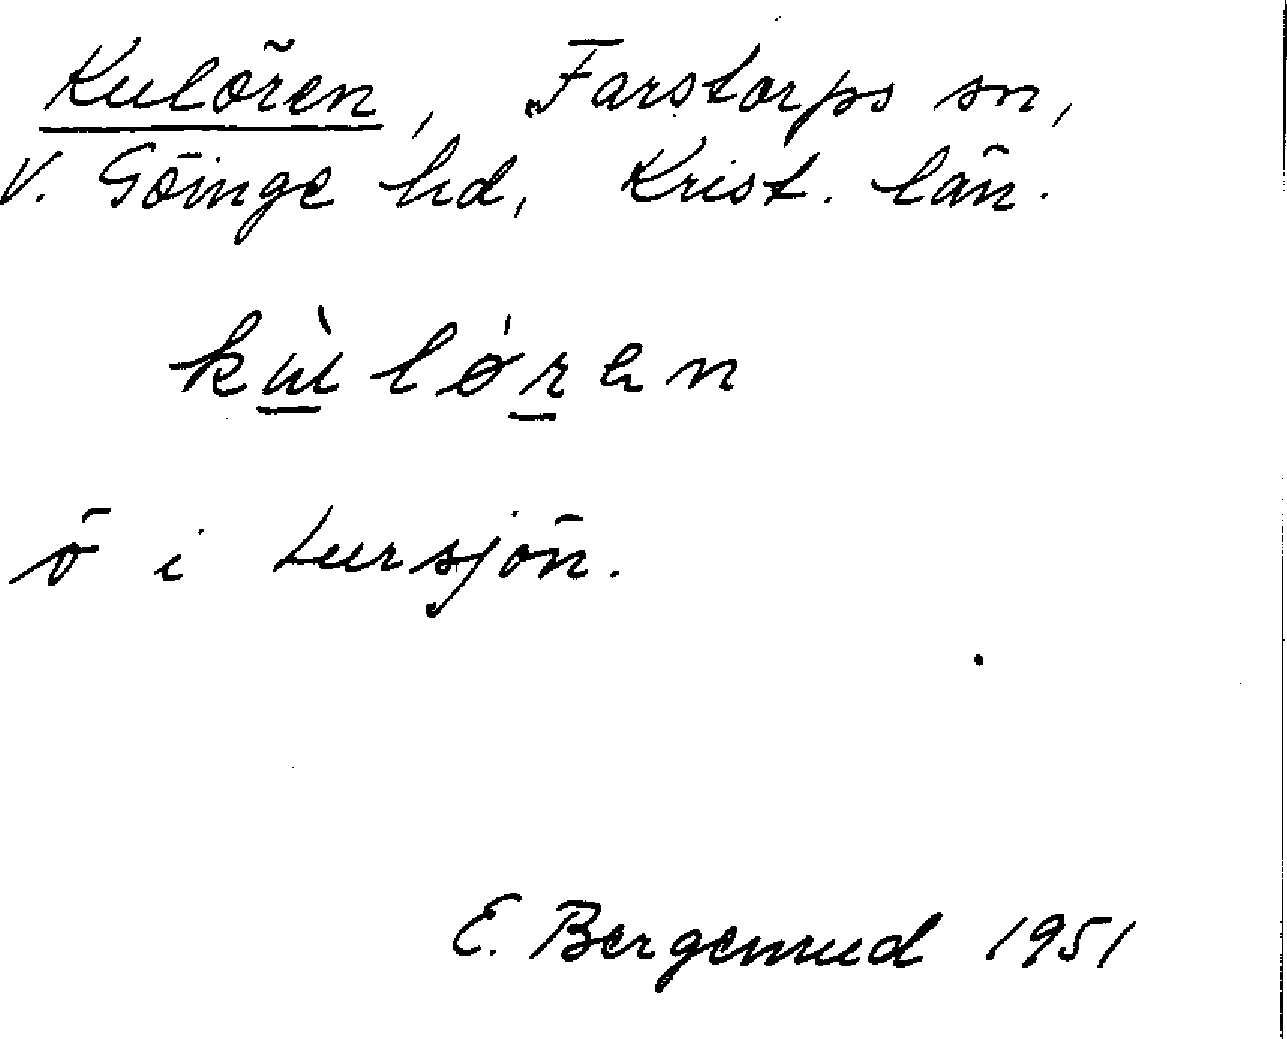 Kulören, Farstorps sn,
V. Göinge hd, Krist. län.
kùlǿren
ö i Lursjön.
E. Bergenrud 1951